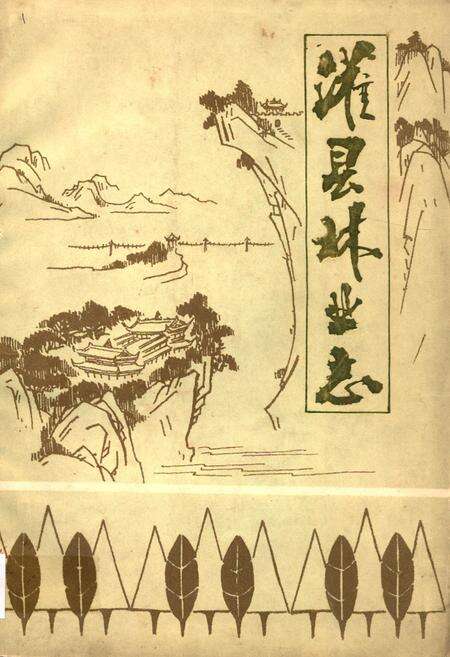 灌县林业志